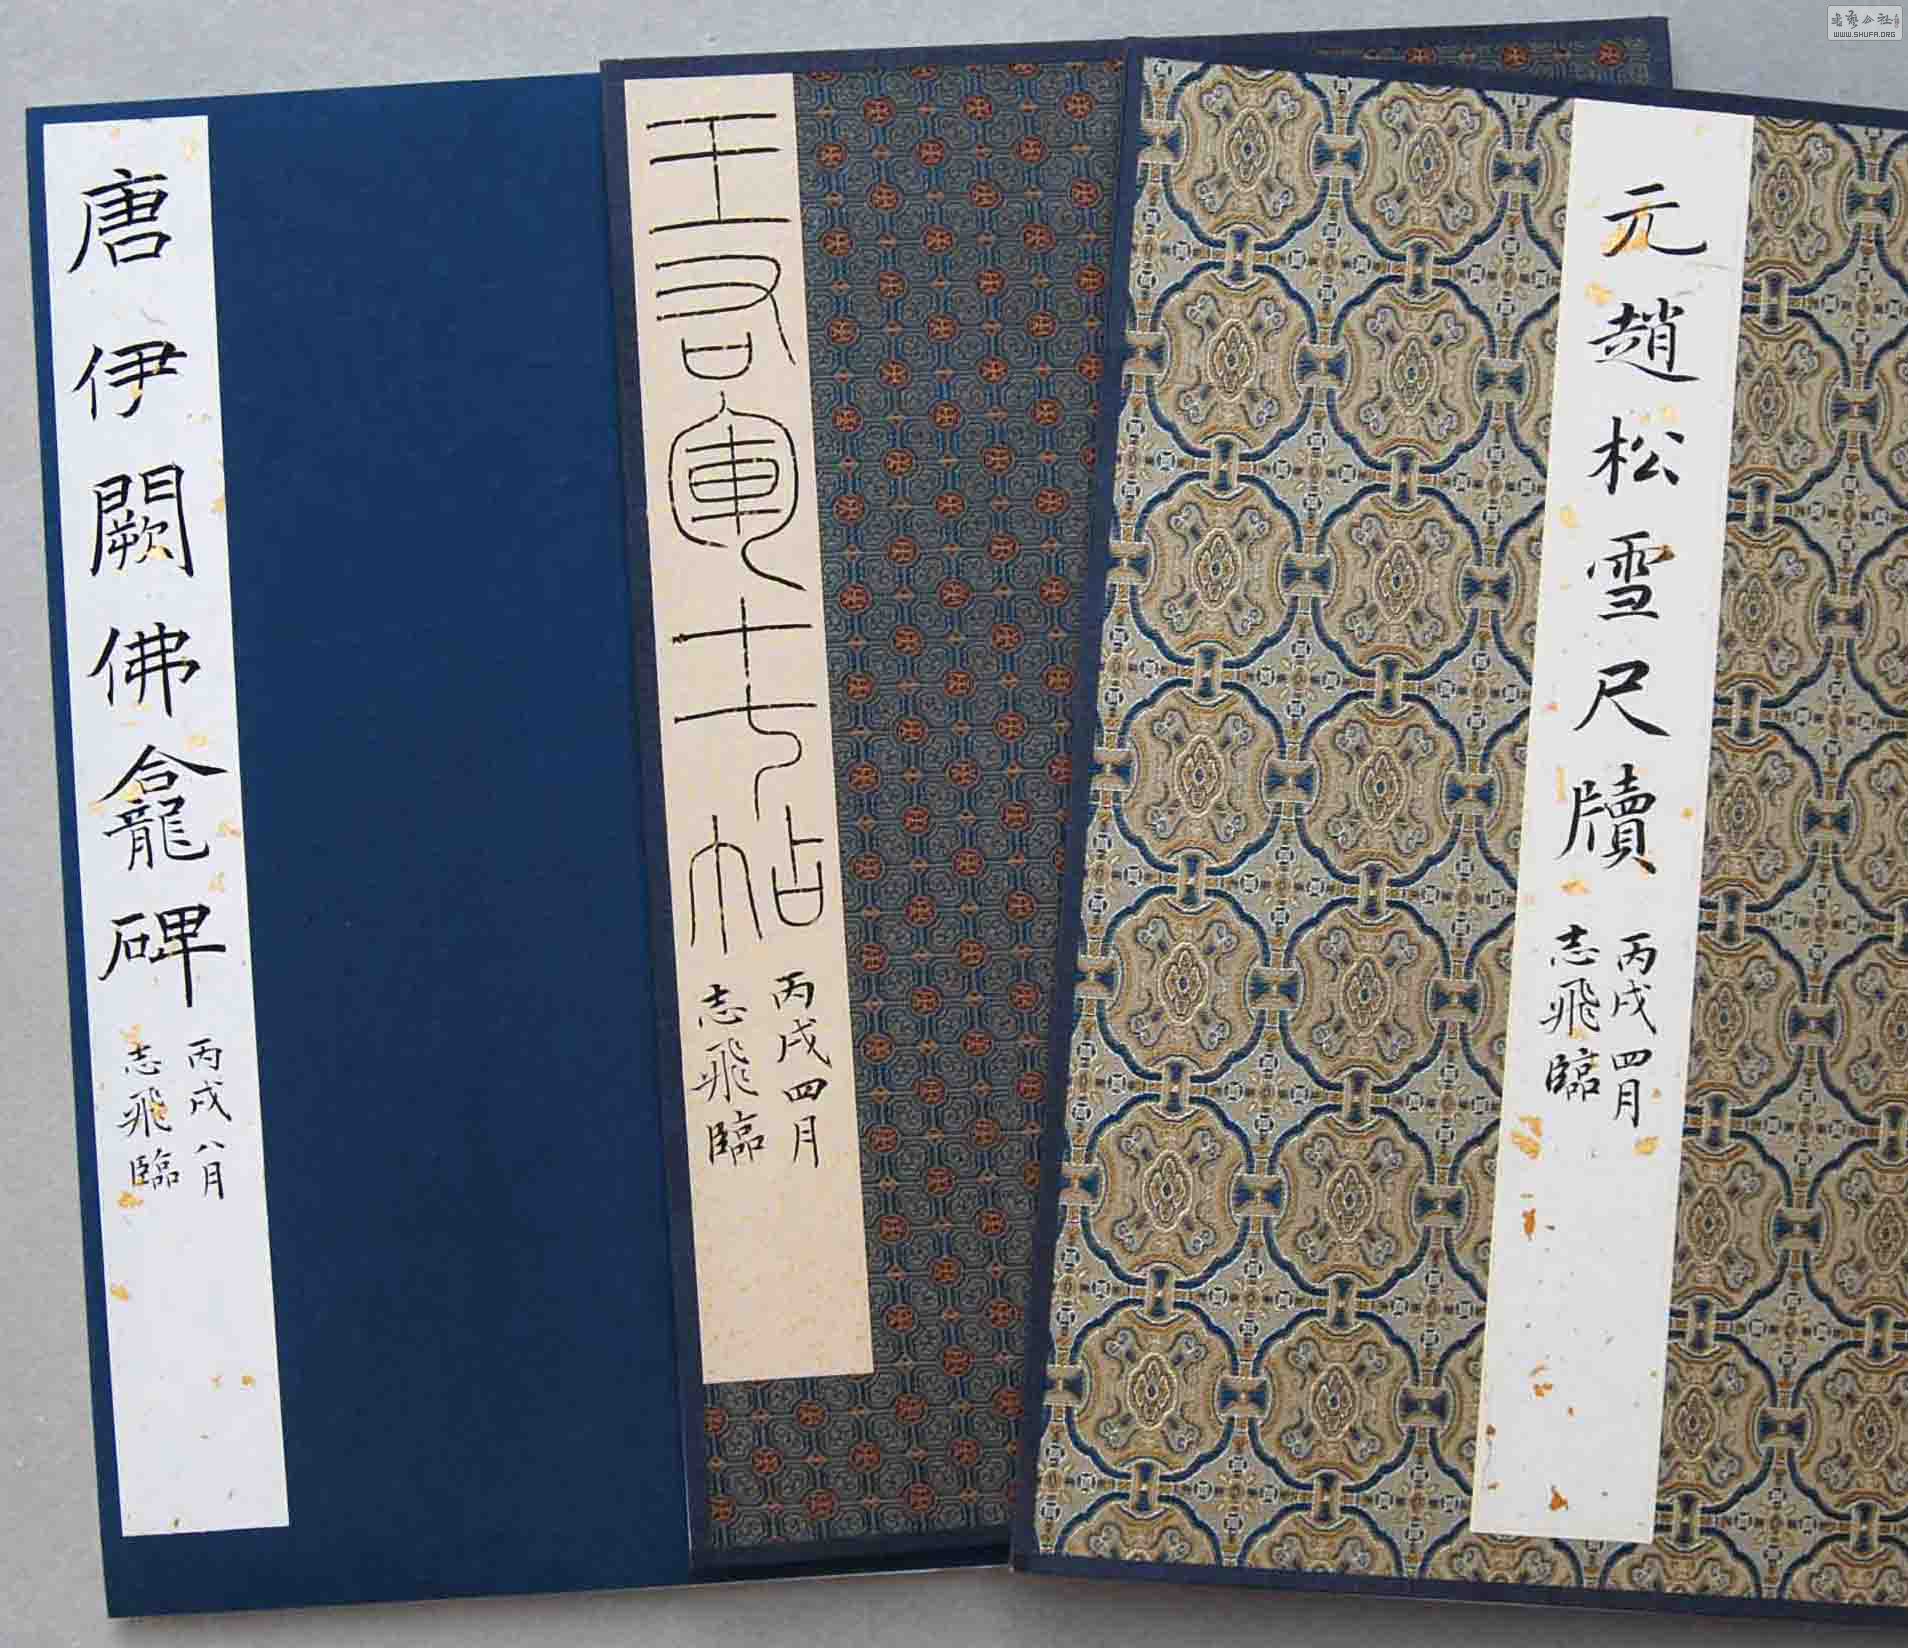 唐伊闕佛龕碑
丙戌八月
志飛臨
王右軍十七帖
丙戌四月
志飛臨
元趙松雪尺牘
丙戌四月
志飛臨
WWW.SHUFA.ORG